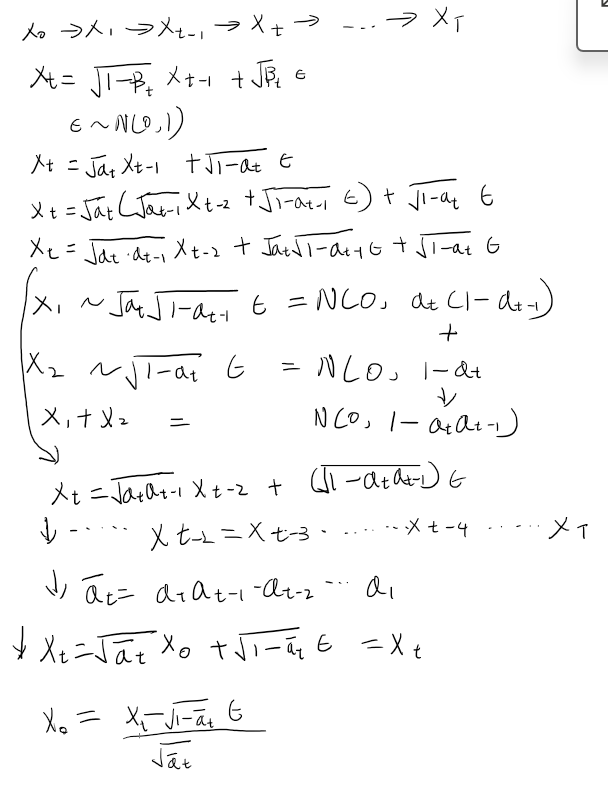 x₀ → x₁ → x_{t-1} → x_t → ... → x_T
x_t = √(1-β_t) x_{t-1} + √β_t ϵ
ϵ ~ N(0,1)
x_t = √a_t x_{t-1} + √(1-a_t) ϵ
x_t = √a_t (√a_{t-1} x_{t-2} + √(1-a_{t-1}) ϵ) + √(1-a_t) ϵ
x_t = √(a_t·a_{t-1}) x_{t-2} + √a_t √(1-a_{t-1}) ϵ + √(1-a_t) ϵ
x₁ ~ √a_t √(1-a_{t-1}) ϵ = N(0, a_t(1-a_{t-1})
+
x₂ ~ √(1-a_t) ϵ = N(0, 1-a_t
↓
x₁ + x₂ = N(0, 1-a_t a_{t-1})
x_t = √(a_t a_{t-1}) x_{t-2} + (√(1-a_t a_{t-1})) ϵ
↓ ...... x_{t-2} = x_{t-3} ........ x_{t-4} ...... x_T
↓ ā_t = a_t a_{t-1}·a_{t-2} ... a₁
↓ x_t = √ā_t x₀ + √(1-ā_t) ϵ = x_t
x₀ = (x_t - √(1-ā_t) ϵ) / √ā_t